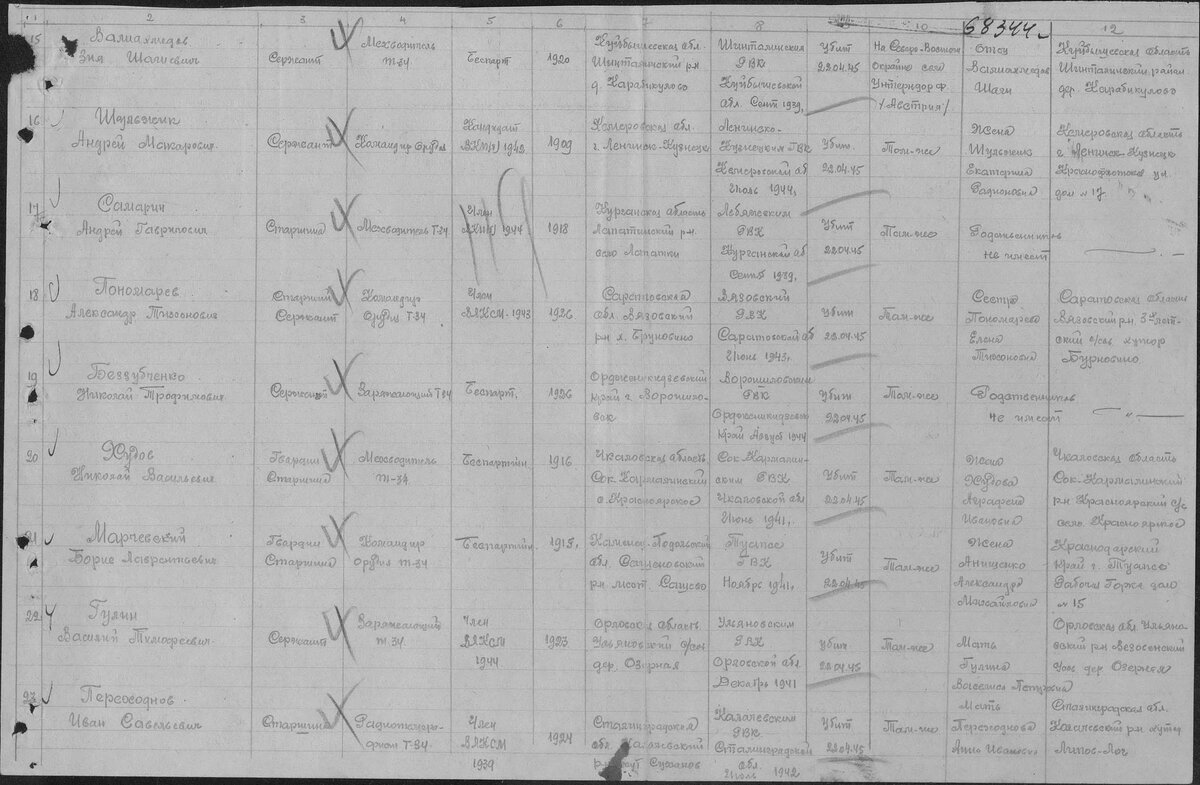 2 3 4 5 6 7 8 10 68344 12
15 Валиахмедов
Зия Шагиевич
Сержант
Мехводитель
Т-34
Беспарт
1920
Куйбышевская обл.
Шинталинский р-н
д. Карабикулово
Шинталинским
РВК
Куйбышевской
обл. Сент 1939,
Убит
22.04.45
На Северо-Восточн
окрайне села
Унтерндорф
/Австрия/
Отец
Валиахмедов
Шаги
Куйбышевская область
Шинталинский район
дер. Карабикулово
16 Шульжик
Андрей Макарович
Сержант
Командир орудия
Кандидат
ВКП(б) 1943
1909
Кемеровская обл
г. Ленинск-Кузнецк
Ленинско-
Кузнецким ГВК
Кемеровской об
Июль 1944,
Убит
22.04.45
Там-же
Жена
Шульжик
Екатерина
Кемеровская область
г. Ленинск-Кузнецк
Краснофлотская ул.
дом № 17
17 Самарин
Андрей Гаврилович
Старшина
Мехводитель Т-34
Член
ВКП(б) 1944
1918
Курганская область
Лапатинский р-н
село Лапатки
Лебяжевским
РВК
Курганской об
Сентб 1939,
Убит
22.04.45
Там-же
Родственников
не имеет
18 Пономарев
Александр Тихонович
Старший
Сержант
Командир
орудия Т-34
Член
ВЛКСМ-1943
1926
Саратовская
обл. Вязовский
Вязовский
РВК
Саратовской об
Июнь 1943,
Убит
22.04.45
Там-же
Сестра
Пономарева
Елена
Тихоновна
Саратовская область
Вязовский р-н
хутор
Бурновино
19 Беззубченко
Николай Трофимович
Сержант
Заряжающий Т-34
Беспарт.
1926
Орджоникидзевский
край г. Ворошилов-
ск
Ворошиловским
ГВК
Орджоникидзевск
край Август 1944
Убит
22.04.45
Там-же
Родственников
не имеет
20 Худов
Николай Васильевич
Гвардии
Старшина
Мехводитель
Т-34
Беспартийн.
1916
Чкаловская область
Сок. Кармалинский
с. Красноярское
Сок. Кармалин-
ским РВК
Чкаловской обл
Июнь 1941,
Убит
22.04.45
Там-же
Жена
Худова
Аграфена
Ивановна
Чкаловская область
Сок-Кармалинский
р-н Красноярский с/с
село. Красноярское
21 Марчевский
Борис Лаврентьевич
Гвардии
Старшина
Командир
орудия Т-34
Беспартийн.
1915,
Каменец-Подольский
Туапсе
ГВК
Ноябрь 1941,
Убит
22.04.45
Там-же
Жена
Анищенко
Александра
Михайловна
Краснодарский
край г. Туапсе
№ 15
22 Гулин
Василий Тимофеевич
Сержант
Заряжающий
Т-34
Член
ВЛКСМ
1944
1923
Орловская область
Ульяновский
дер. Озерная
Ульяновским
РВК
Орловской обл.
Декабрь 1941
Убит
22.04.45
Там-же
Мать
Гулина
Василиса Петровна
Орловская обл. Ульяно-
вский р-н
дер Озерная
23 Переходнов
Иван Савельевич
Старшина
Радиотелегра-
фист Т-34
Член
ВЛКСМ
1939
1924
Сталинградская
обл. Калачевский
Калачевским
РВК
Сталинградской
обл.
Июль 1942
Убит
22.04.45
Там-же
Мать
Переходнова
Анна Ивановна
Сталинградская обл.
Калачевский р-н хутор
Липов-Лог